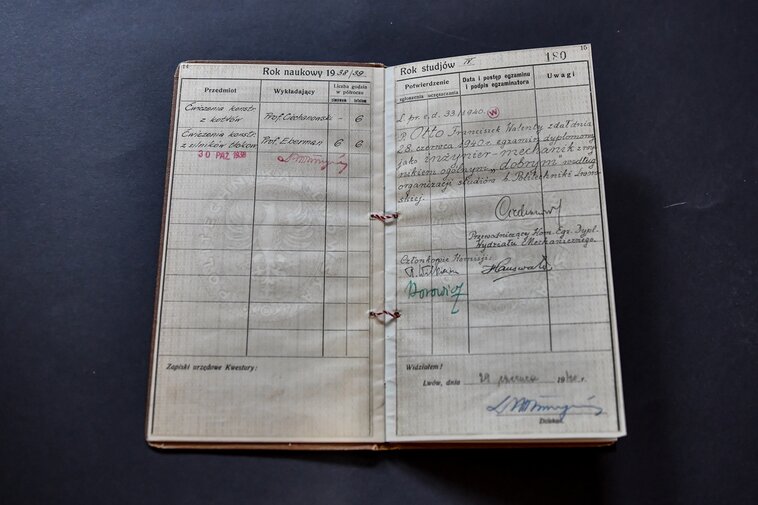 14
Rok naukowy 1938/39.
Przedmiot
Wykładający
Liczba godzin
w półroczu
zimowem
letniem
Ćwiczenia konstr.
z kotłów
Prof. Ciechanowski
-
6
Ćwiczenia konstr.
z silników tłokow.
Prof. Eberman
6
6
30 PAŹ 1938
Zapiski urzędowe Kwestury:
15
Rok studjów IV.
180
Potwierdzenie
zgłoszenia
uczęszczania
Data i postęp egzaminu
i podpis egzaminatora
Uwagi
L. pr. e. d. 33/1940.
P. Otto Franciszek Walenty zdał dnia
28 czerwca 1940 r. egzamin dyplomowy
jako inżynier-mechanik z wy-
nikiem ogólnym „dobrym" według
organizacji studiów b. Politechniki Lwow-
skiej.
Przewodniczący Kom. Egz. Dypl.
Wydziału Mechanicznego.
Członkowie Komisji:
Hauswald
Widziałem!
Lwów, dnia 29 czerwca 1940 r.
Dziekan.